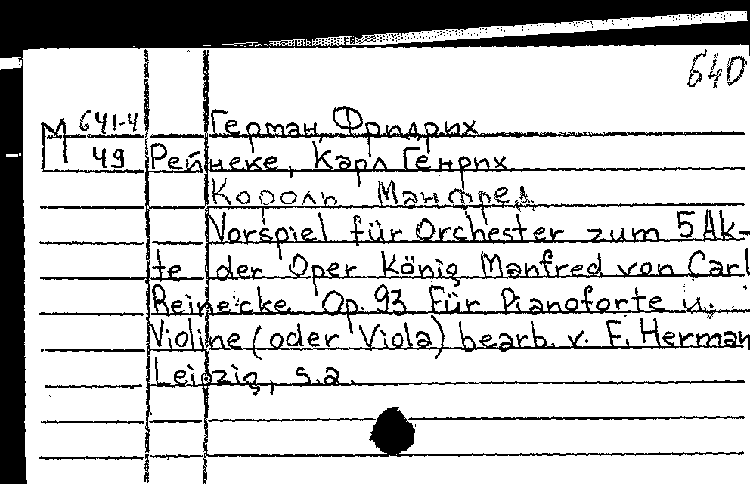 640
М 641-4
49
Герман, Фридрих
Рейнеке, Карл Генрих
Король Манфред
Vorspiel für Orchester zum 5 Ak-
te der Oper König Manfred von Carl
Reinecke. Op. 93 Für Pianoforte u.
Violine (oder Viola) bearb. v. F. Herman
Leipzig, s.a.